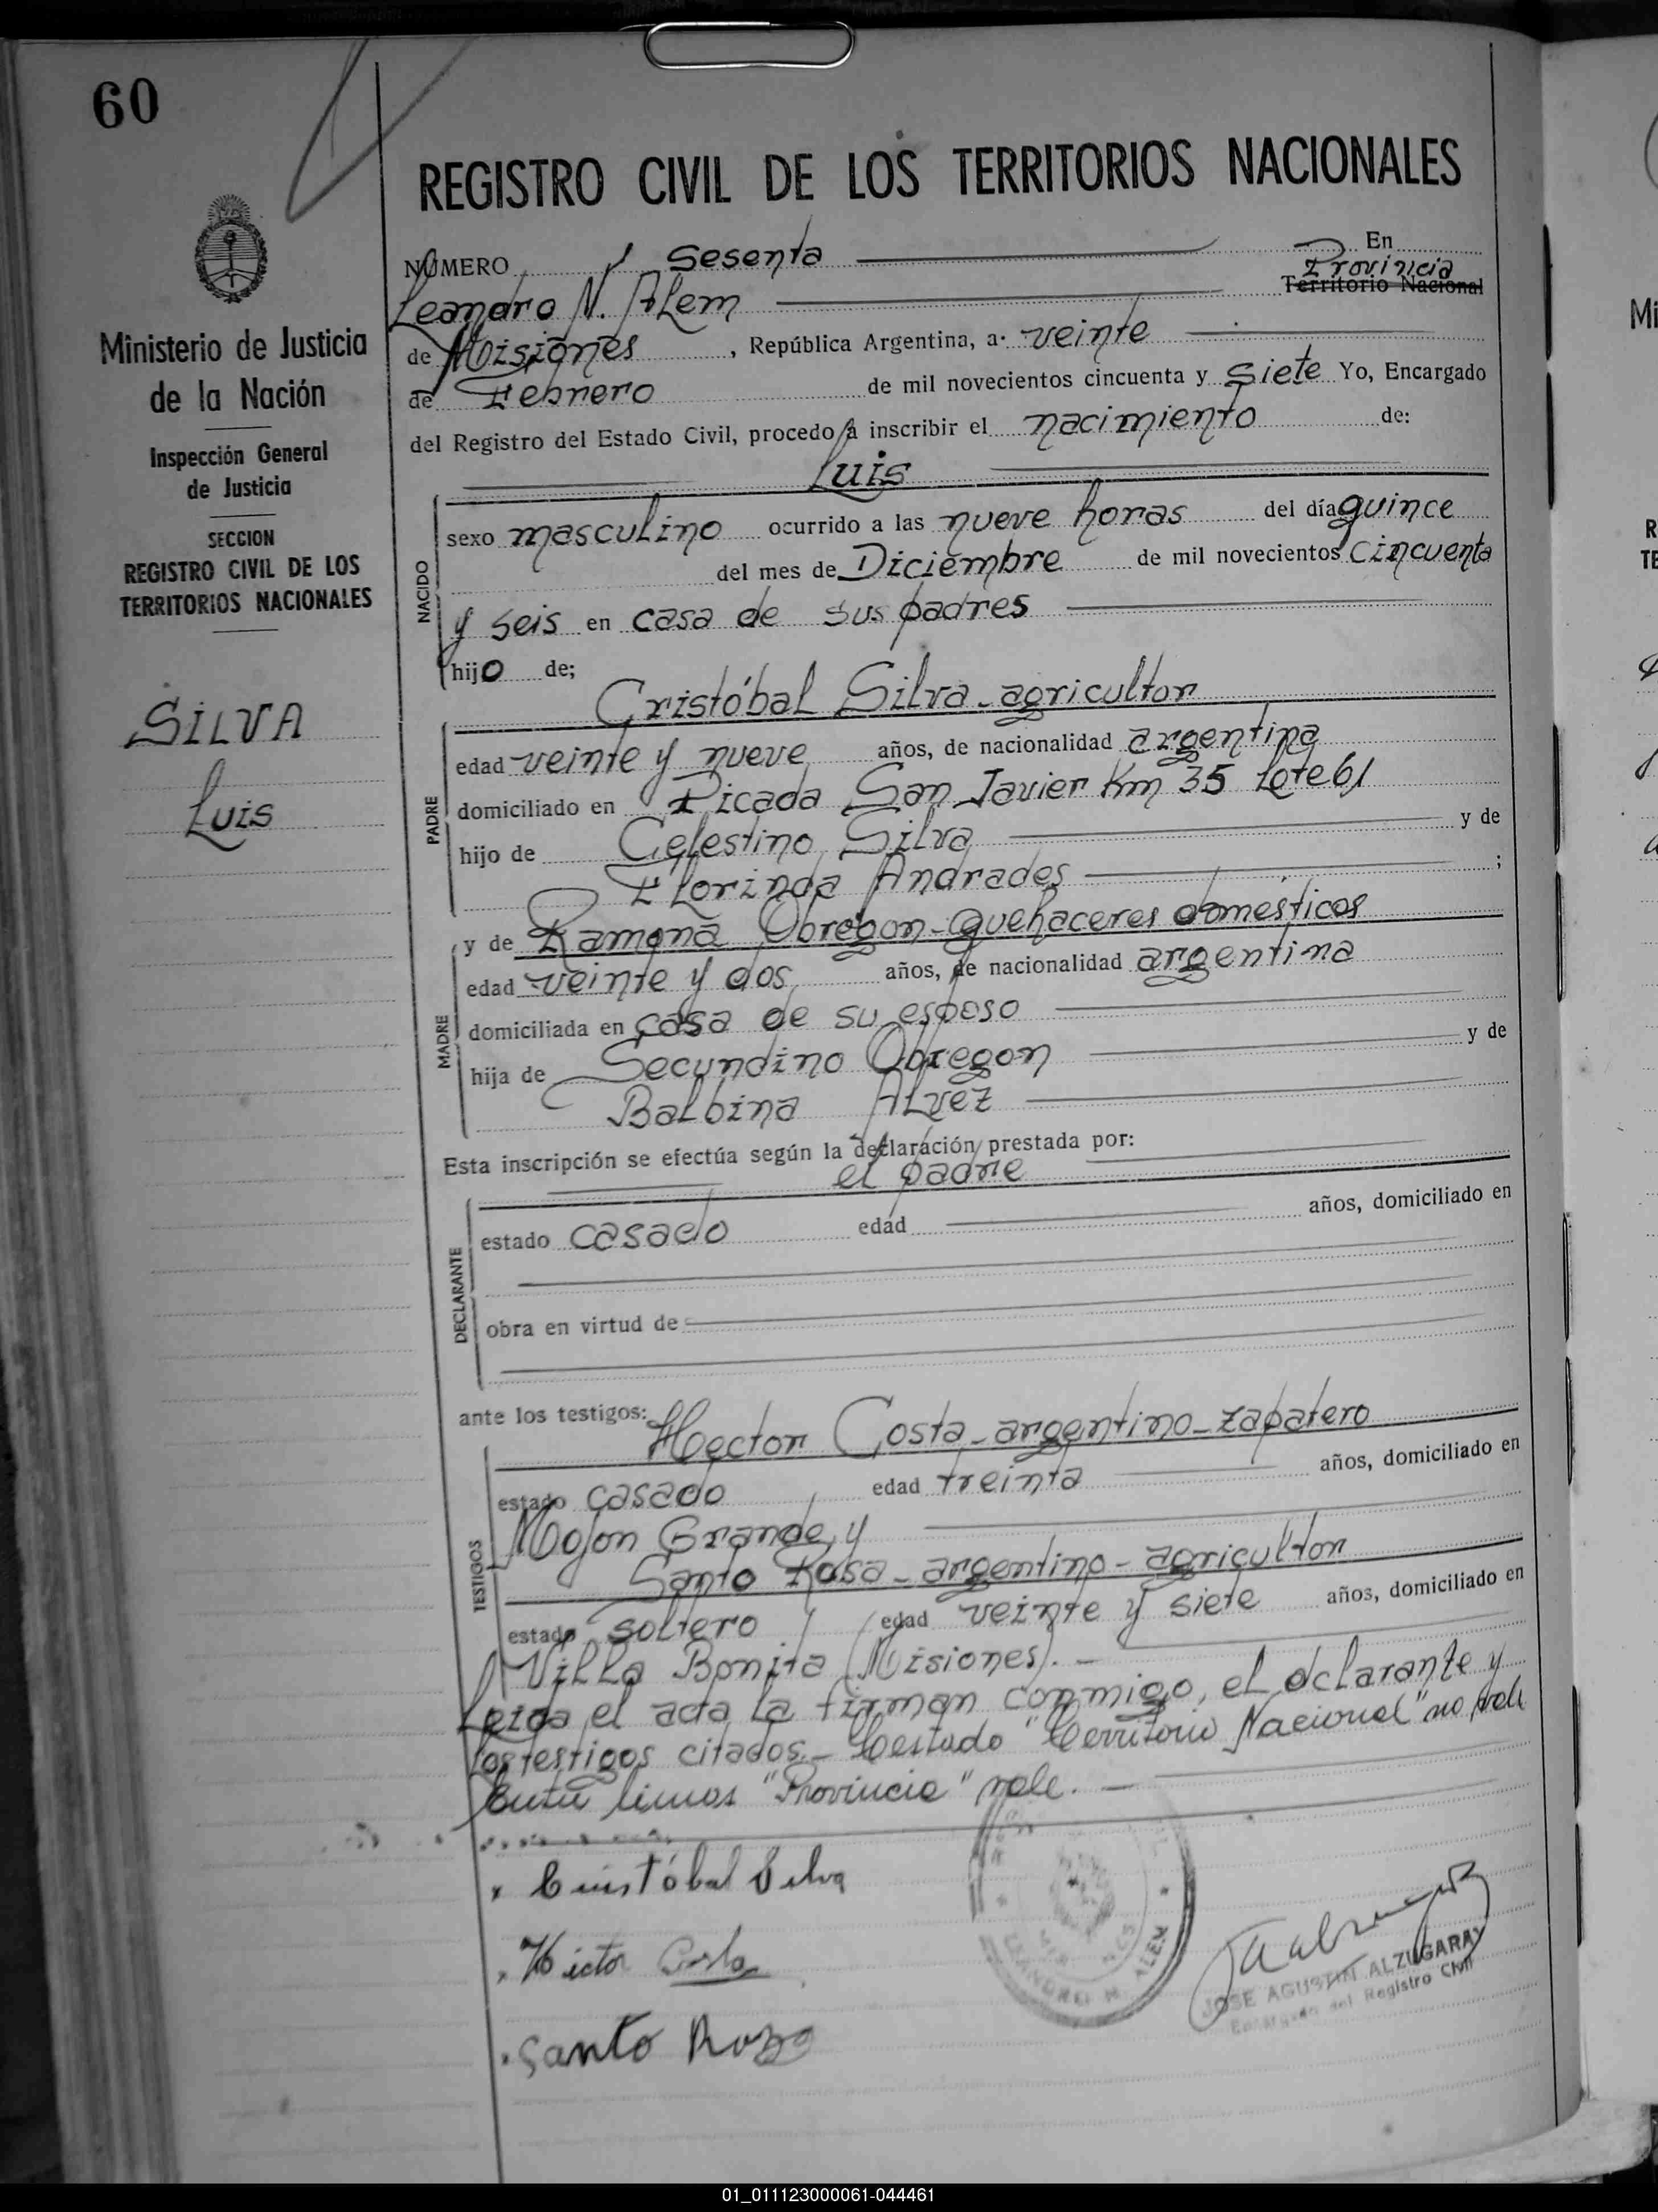 60
REGISTRO CIVIL DE LOS TERRITORIOS NACIONALES
Ministerio de Justicia
de la Nación
Inspección General
de Justicia
SECCION
REGISTRO CIVIL DE LOS
TERRITORIOS NACIONALES
SILVA
Luis
NÚMERO Sesenta En
Leandro N. Alem Provinicia Territorio Nacional
de Misiones, República Argentina, a veinte
de Febrero de mil novecientos cincuenta y siete Yo, Encargado
del Registro del Estado Civil, procedo a inscribir el nacimiento de:
Luis
NACIDO
sexo masculino ocurrido a las nueve horas del día quince
del mes de Diciembre de mil novecientos cincuenta
y seis en casa de sus padres
hijo de;
Cristóbal Silva - agricultor
PADRE
edad veinte y nueve años, de nacionalidad argentina
domiciliado en Picada San Javier Km 35 Lote 61
hijo de Celestino Silva y de
Florinda Andrades ;
y de Ramona Obregon - quehaceres domésticos
MADRE
edad veinte y dos años, de nacionalidad argentina
domiciliada en casa de su esposo
hija de Secundino Obregon y de
Balbina Alvez
Esta inscripción se efectúa según la declaración prestada por:
el padre
DECLARANTE
estado casado edad años, domiciliado en
obra en virtud de
ante los testigos: Hector Costa - argentino - zapatero
TESTIGOS
estado casado edad treinta años, domiciliado en
Mojon Grande, y
Santo Rosa - argentino - agricultor
estado soltero edad veinte y siete años, domiciliado en
Villa Bonita (Misiones). -
Leida el acta la firman conmigo, el dclarante y
los testigos citados. - Testado "Territorio Nacional" no vale
Entre lineas "Provincia" vale. -
x Cristóbal Silva
Hictor Costa
Santo Roza
LEANDRO N. ALEM
JOSE AGUSTIN ALZUGARAY
Encargado del Registro Civil
01_011123000061-044461